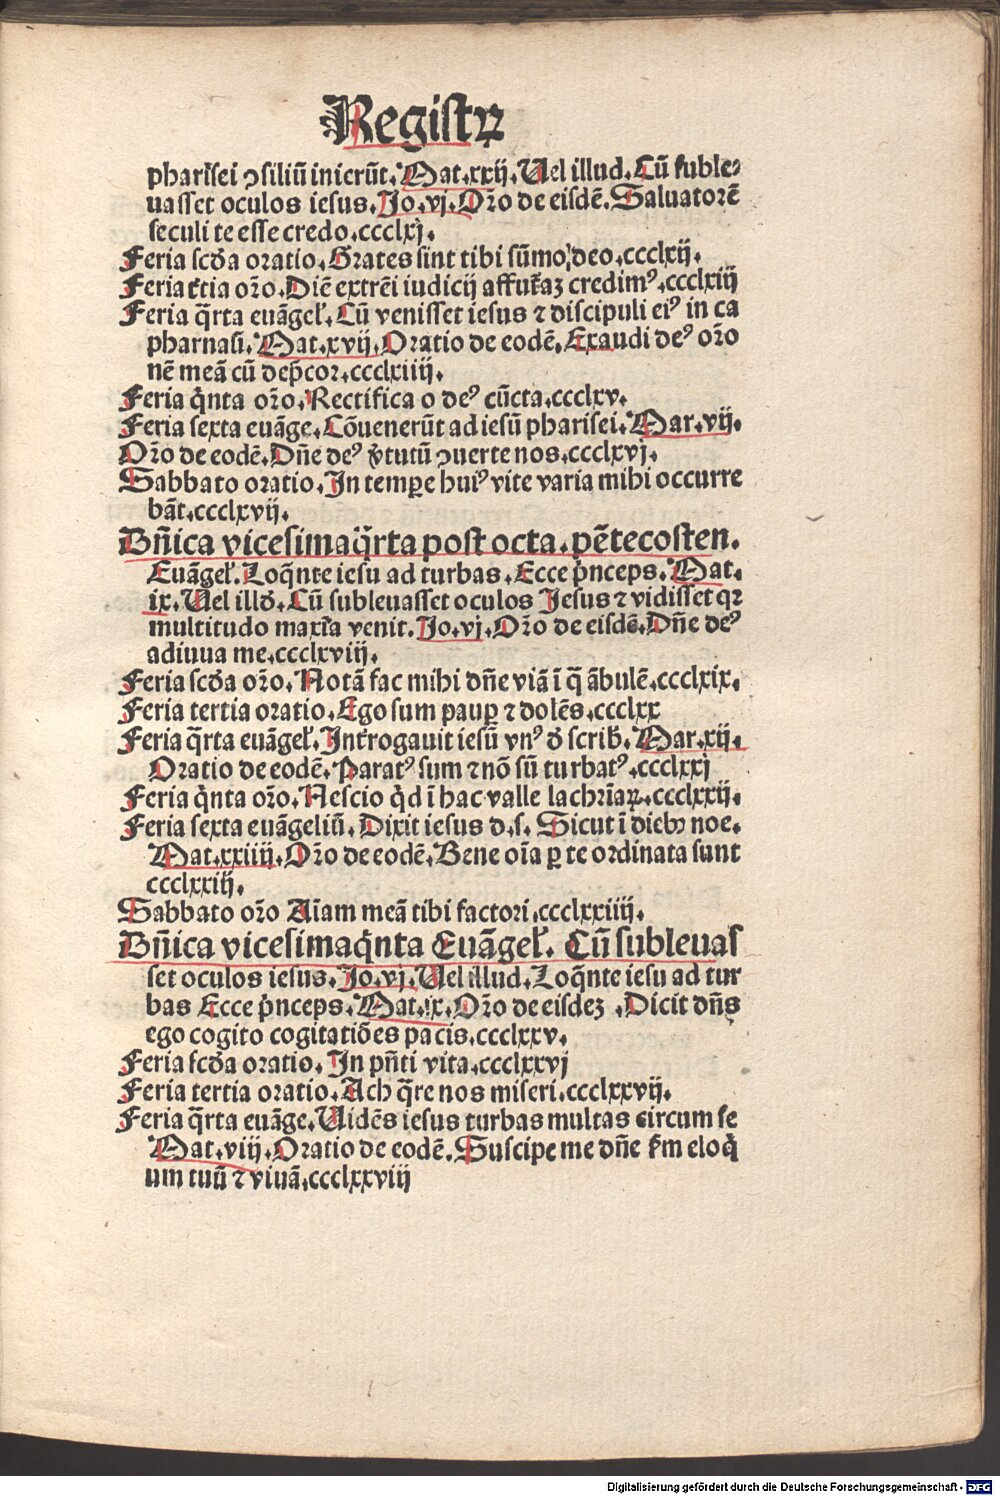 Registrꝝ
pharisei ꝯsiliū inierūt. Mat. xxij. Uel illud. Cū suble⸗
uasset oculos iesus. Jo. vj. Oro de eisdē. Saluatorē
seculi te esse credo. ccclxj.
Feria scda oratio. Grates sint tibi sūmo deo. ccclxij.
Feria ťtia oro. Diē extrēi iudicij affuťaꝫ credimꝰ. ccclxiij
Feria q̄rta euāgeł. Cū venisset iesus ⁊ discipuli eiꝰ in ca
pharnaū. Mat. xvij. Oratio de eodē. Exaudi deꝰ oro
nē meā cū dep̄cor. ccclxiiij.
Feria q̇nta oro. Rectifica o deꝰ cūcta. ccclxv.
Feria sexta euāge. Cōuenerūt ad iesū pharisei. Mar. vij.
Oro de eodē. Dn̄e deꝰ v̓tutū ꝯuerte nos. ccclxvj.
Sabbato oratio. In tempe huiꝰ vite varia mihi occurre
bāt. ccclxvij.
Dn̄ica vicesimaq̄rta post octa. pētecosten.
Euāgeł. Loq̄nte iesu ad turbas. Ecce p̓nceps. Mat.
ix. Uel illd. Cū subleuasset oculos Jesus ⁊ vidisset qꝛ
multitudo maxīa venit. Jo. vj. Oro de eisdē. Dn̄e deꝰ
adiuua me. ccclxviij.
Feria scda oro. Notā fac mihi dn̄e viā ī q̄ ābulē. ccclxix.
Feria tertia oratio. Ego sum paup̱ ⁊ dolēs. ccclxx
Feria q̄rta euāgeł. Interrogauit iesū vnꝰ d̓ scrib̓. Mar. xij.
Oratio de eodē. Paratꝰ sum ⁊ nō sū turbatꝰ. ccclxxj
Feria q̇nta oro. Nescio q̇d ī hac valle lachrīaꝝ. ccclxxij.
Feria sexta euāgeliū. Dixit iesus d. s. Sicut ī diebꝰ noe.
Mat. xxiiij. Oro de eodē. Bene oīa ꝑ te ordinata sunt
ccclxxiij.
Sabbato oro Aīam meā tibi factori. ccclxxiiij.
Dn̄ica vicesimaq̇nta Euāgeł. Cū subleuas
set oculos iesus. Jo. vj. Uel illud. Loq̄nte iesu ad tur
bas Ecce p̓nceps. Mat. ix. Oro de eisdeꝫ. Dicit dn̄s
ego cogito cogitatiōes pacis. ccclxxv.
Feria scda oratio. In pn̄ti vita. ccclxxvj
Feria tertia oratio. Ach q̄re nos miseri. ccclxxvij.
Feria q̄rta euāge. Uidēs iesus turbas multas circum se
Mat. viij. Oratio de eodē. Suscipe me dn̄e ẜm eloq̇
um tuū ⁊ viuā. ccclxxviij
Digitalisierung gefördert durch die Deutsche Forschungsgemeinschaft - DFG